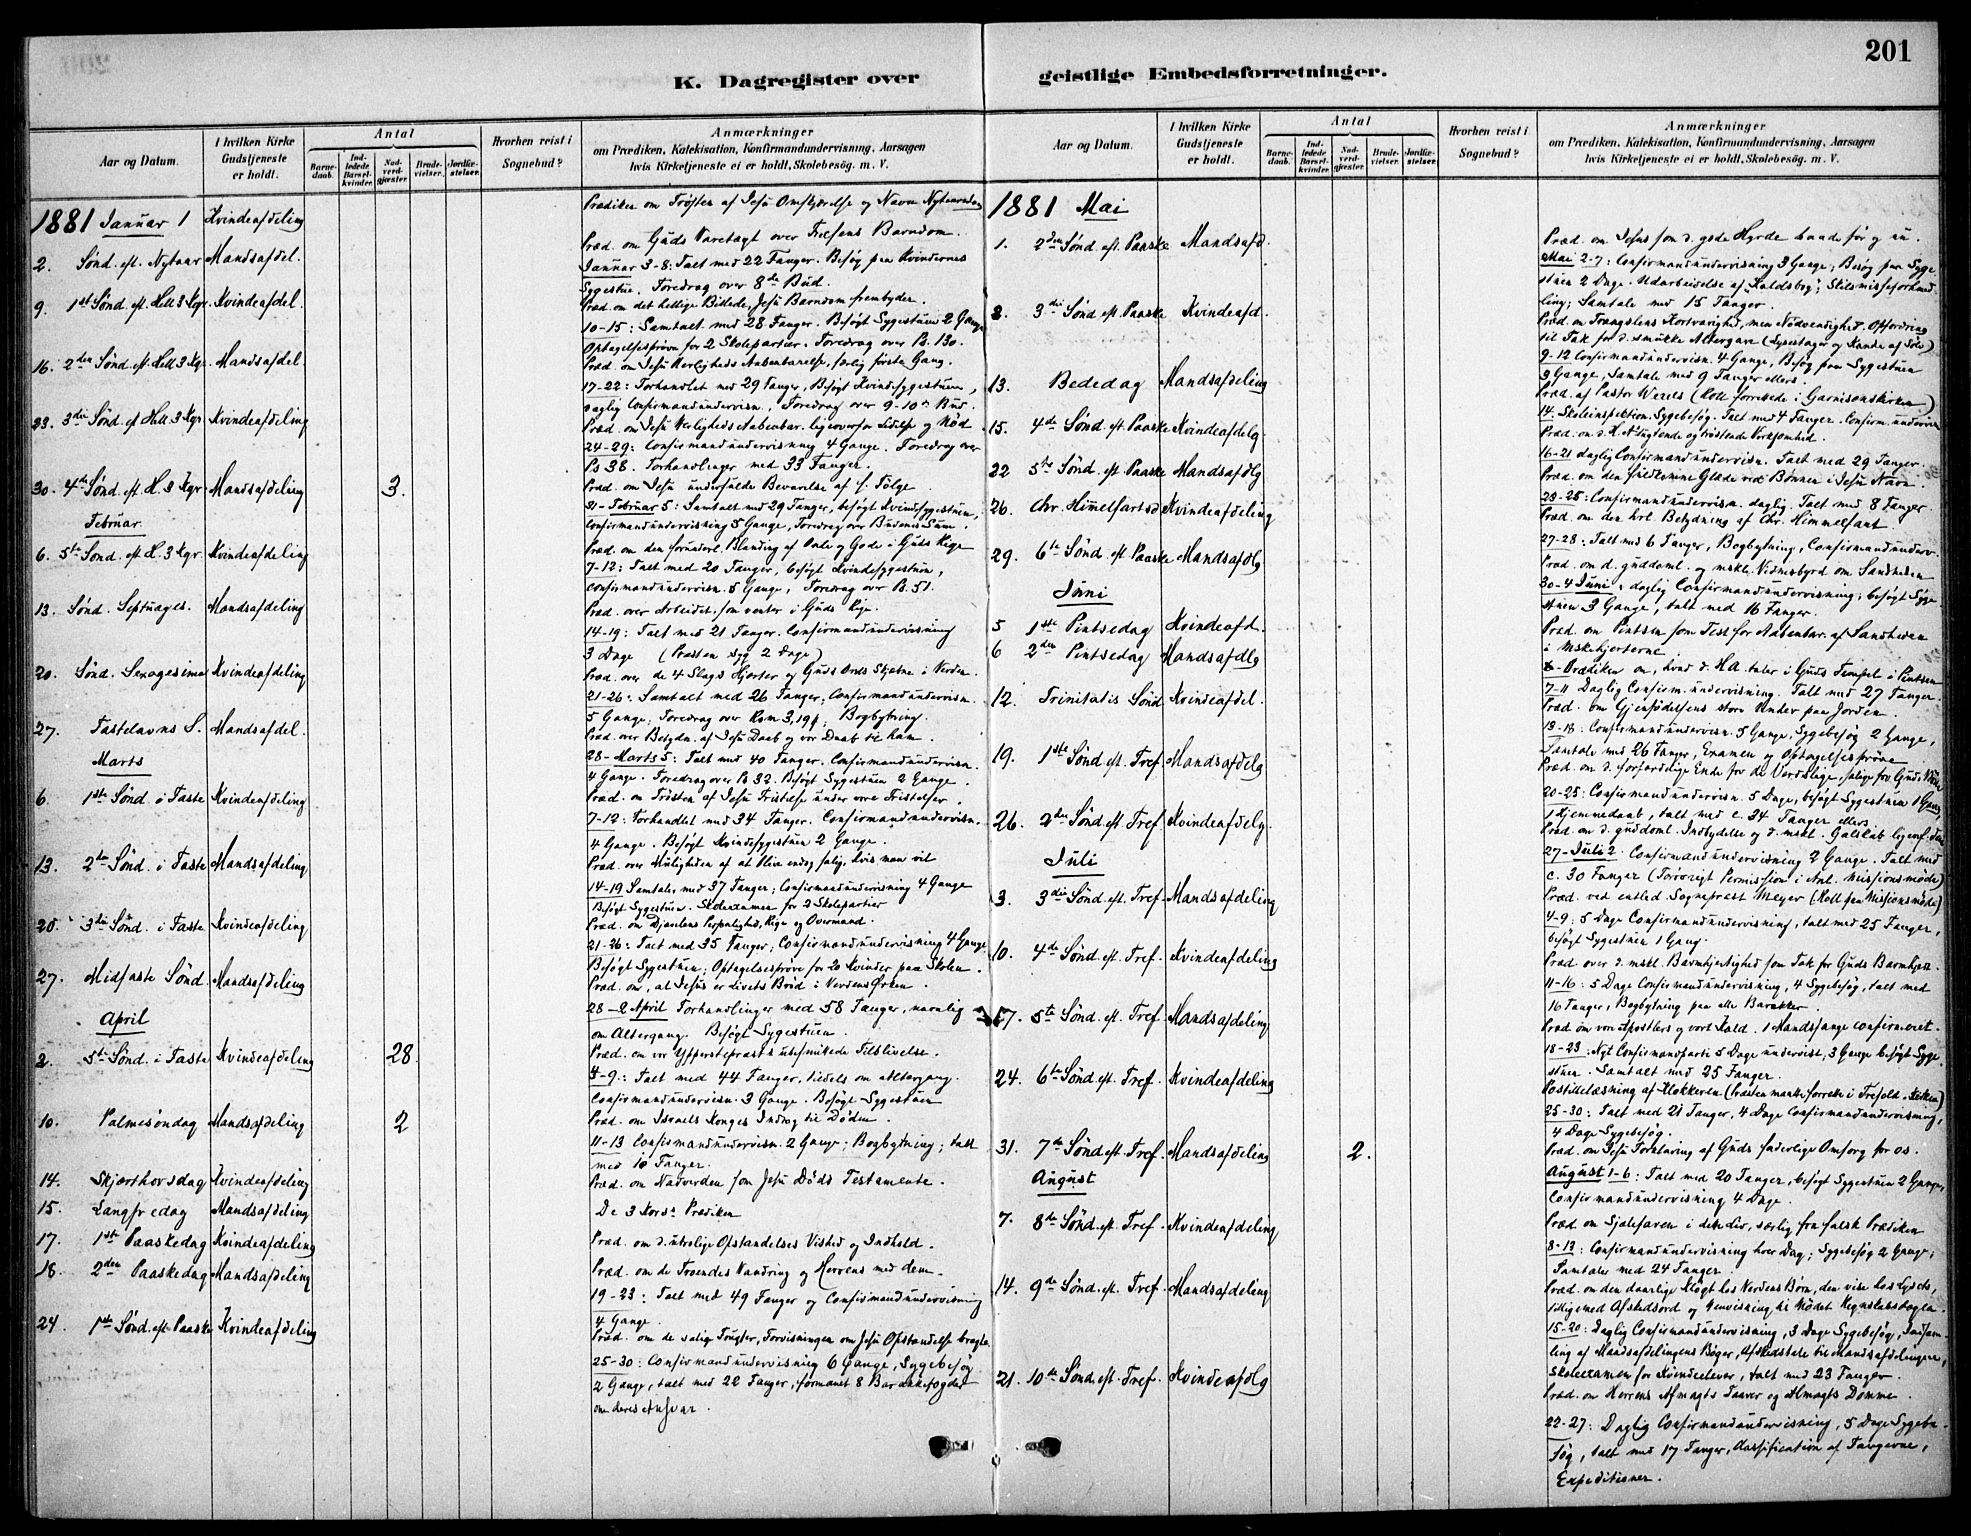 201
K. Dagregister over geistlige Embedsforretninger.
Aar og Datum.
I hvilken Kirke Gudstjeneste er holdt.
Antal
Barnedaab.
Indledede Barselkvinder.
Nadverdgjæster.
Brudevielser.
Jordfæstelser.
Hvorhen reist i Sognebud?
Anmærkninger
om Prædiken, Katekisation, Konfirmandundervisning, Aarsagen
hvis Kirketjeneste ei er holdt, Skolebesög. m. V.
1881 Januar 1 Kvindeafdeling
Prædiken om Trøsten af Jesu Omskjærelse og Navn
2. Sønd. eft. Nytaar Mandsafdel.
Præd. om Guds Varetægt over Frelsens Barndom.
Januar 3-8: Talt med 22 Fanger. Besøg paa Kvindernes
Sygestue. Foredrag over 8de Bud.
9. 1st Sønd. eft. Hell 3 Kgr. Kvindeafdel.
Præd. om det hellige Billede, Jesu Barndom frembyder.
10-15: Samtalt med 28 Fanger. Besøgt Sygestuen 2 Gange
Optagelsesprøve for 2 Skolepartier. Foredrag over Ps. 130.
16. 2den Sønd. eft. Hell 3 Kgr. Mandsafdel.
Præd. om Jesu Herligheds Aabenbarelse, særlig første Gang.
17-22: Forhandlet med 29 Fanger, Besøgt Kvindesygestuen,
daglig Confirmandundervisn., Foredrag over 9-10de Bud.
23. 3die Sønd. eft Hell 3 Kgr. Kvindeafdeling
Præd. om Jesu Herligheds Aabenbar. ligeoverfor Lidelse og Nød.
24-29: Confirmandundervisning 4 Gange. Foredrag over
Ps 38. Forhandlinger med 33 Fanger.
30. 4de Sønd. eft. H. 3 Kgr. Mandsafdeling 3.
Præd. om Jesu underfulde Bevarelse af s. Følge
31-Februar 5: Samtalt med 29 Fanger, besøgt Kvindesygestuen,
Confirmandundervisning 5 Gange, Foredrag over Budenes Sum.
Februar
6. 5te Sønd. eft. H. 3 Kgr. Kvindeafdeling
Præd. om den forunderl. Blanding af Onde og Gode i Guds Rige
7-12: Talt med 20 Fanger, besøgt Kvindesygestuen,
Confirmandundervisn. 5 Gange, Foredrag over Ps. 51.
13. Sønd. Septuages. Mandsafdeling
Præd. over Arbeidet, som venter i Guds Rige.
14-19: Talt med 21 Fanger. Confirmandundervisning
3 Dage (Præsten syg 2 Dage)
20. Sønd. Sexagesima Kvindeafdeling
Præd. over de 4 Slags Hjerter og Guds Ords Skjæbne i Verden
21-26: Samtalt med 26 Fanger; Confirmandundervisn.
5 Gange; Foredrag over Rom 3,19f; Bogbytning.
27. Fastelavns S. Mandsafdel.
Præd. over Betydn. af Jesu Daab og vor Daab til ham.
28-Marts 5: Talt med 40 Fanger. Confirmandundervisn.
4 Gange. Foredrag over Ps 32. Besøgt Sygestuen 2 Gange.
Marts
6. 1ste Sønd. i Faste Kvindeafdeling
Præd. om Trøsten af Jesu Fristelse under vore Fristelser.
7-12: Forhandlet med 34 Fanger. Confirmandundervisn.
4 Gange. Besøgt Kvindesygestuen 2 Gange.
13. 2de Sønd. i Faste Mandsafdeling
Præd. over Muligheden af at blive endog salig, hvis man vil
14-19 Samtaler med 37 Fanger; Confirmandundervisning 4 Gange
Besøgt Sygestuen. Skoleexamen for 2 Skolepartier
20. 3die Sønd. i Faste Kvindeafdeling
Præd. om Djævelens Personlighed, Rige og Overmand.
21-26: Talt med 35 Fanger; Confirmandundervisning 4 Gange
Besøgt Sygestuen; Optagelsesprøve for 20 Kvinder paa Skolen.
27. Midfaste Sønd. Mandsafdeling
Præd. om, at Jesus er Livets Brød i Verdens Ørken.
28-2 April Forhandlinger med 58 Fanger, navnlig
om Altergang. Besøgt Sygestuen.
April
2. 5te Sønd. i Faste Kvindeafdeling 28.
Præd. om vor Yppersteprests ubesmittede Tilblivelse.
4-9: Talt med 44 Fanger, tildels om Altergang.
Confirmandundervisn. 3 Gange. Besøgt Sygestuen
10. Palmesøndag Mandsafdeling 2
Præd. om Israels Konges Indtog til Døden.
11-13 Confirmandundervisn. 2 Gange; Bogbytning; talt
med 10 Fanger.
14. Skjærthorsdag Kvindeafdeling
Præd. om Nadverden som Jesu Døds Testamente.
15. Langfredag Mandsafdeling
De 3 Kors' Prædiken
17. 1ste Paaskedag Kvindeafdeling
Præd. om d. utrolige Opstandelses Vished og Indhold.
18. 2den Paaskedag Mandsafdeling
Præd. om de Troendes Vandring og Herrens med dem.
19-23: Talt med 49 Fanger og Confirmandundervisning
4 Gange.
24. 1ste Sønd. eft. Paaske Kvindeafdeling
Præd. om de salige Frugter, Forvisningen om Jesu Opstandelse bragte.
25-30: Confirmandundervisning 6 Gange, Sygebesøg
2 Gange, talt med 22 Fanger, formanet 8 Barakkefogder
om deres Ansvar.
Aar og Datum.
I hvilken Kirke Gudstjeneste er holdt.
Antal
Barnedaab.
Indledede Barselkvinder.
Nadverdgjæster.
Brudevielser.
Jordfæstelser.
Hvorhen reist i Sognebud?
Anmærkninger
om Prædiken, Katekisation, Konfirmandundervisning, Aarsagen
hvis Kirketjeneste ei er holdt, Skolebesög. m. V.
1881 Mai
1. 2den Sønd. eft. Paaske Mandsafd.
Præd. om Jesus som d. gode Hyrde baade før og nu.
Mai 2-7: Confirmandundervisning 3 Gange; Besøg paa Syge
stuen 2 Dage. Udarbeidelse af Kaldsbog; Skilsmisseforhand
ling; Samtale med 15 Fanger.
8. 3die Sønd. eft. Paaske Kvindeafd.
Præd. om Trængslens Kortvarighed, men Nødvendighed. Opfordring
til Tak for d. smukke Altergave (Lysestager og Kande af Sølv)
9-12 Confirmandundervisn. 4 Gange, Besøg paa Sygestuen
3 Gange, Samtale med 9 Fanger ellers.
13. Bededag Mandsafdeling
Præd. af Pastor Wexels (Koll forrettede i Garnisonskirken)
14. Skoleinspektion. Sygebesøg. Talt med 4 Fanger. Confirm. undervisn
15. 4de Sønd. eft. Paaske Kvindeafdelg.
Præd. om d. H. A. tugtende og trøstende Virksomhed.
16-21 daglig Confirmandundervisn. Talt med 29 Fanger.
22 5te Sønd. eft. Paaske Mandsafdlg
Præd. om den fuldkomne Glæde ved Bønnen i Jesu Navn.
23-25: Confirmandundervisn. daglig. Talt med 8 Fanger.
26. Chr. Himmelfartsd Kvindeafdeling
Præd. om den hrl. Betydning af Chr. Himmelfart.
27-28: Talt med 6 Fanger, Bogbytning, Confirmandunderv.
29. 6te Sønd. eft. Paaske Mandsafdlg
Præd. om d. guddoml. og mskl. Vidnesbyrd om Sandheden
30-4 Juni: daglig Confirmandundervisning; besøgt Syge
stuen 3 Gange, talt med 16 Fanger.
Juni
5 1ste Pintsedag Kvindeafd.
Præd. om Pintsen som Fest for Aabenbar. af Sandheden
i Mskehjerterne.
6 2den Pintsedag Mandsafdlg
Prædiken om, hvad d. H A. taler i Guds Tempel i Pintsen
7-11 Daglig Confirm.undervisning. Talt med 27 Fanger.
12. Trinitatis Sønd. Kvindeafdel.
Præd. om Gjenfødelsens store Under paa Jorden.
13-18. Confirmandundervisn. 5 Gange, Sygebesøg 2 Gange,
Samtale med 26 Fanger, Examen og Optagelsesprøve
19. 1ste Sønd. eft. Tref. Mandsafdelg
Præd. om d. forfærdelige Ende for de Verdslige, salige for Guds Venner
20-25: Confirmandundervisn. 5 Dage, besøgt Sygestuen 1 Gang
1 Hjemmedaab, talt med c. 34 Fanger ellers.
26. 2den Sønd. eft. Tref. Kvindeafdelg.
Præd. om d. guddoml. Indbydelse og d. mskl. Galskab
27-Juli 2. Confirmandundervisning 2 Gange. Talt med
c. 30 Fanger (Forøvrigt Permission i Anl. Missionsmøde)
Juli
3. 3die Sønd. eft. Tref. Mandsafdeling
Præd. ved entled. Sogneprest Meyer (Koll paa Missionsmøde)
4-9: 5 Dage Confirmandundervisning, talt med 25 Fanger,
besøgt Sygestuen 1 Gang.
10. 4de Sønd. eft. Tref. Kvindeafdeling
Præd. over d. mskl. Barmhjertighed som Tak for Guds Barmhjert.
11-16: 5 Dage Confirmandundervisning, 4 Sygebesøg, talt med
16 Fanger, Bogbytning paa alle Barakker.
17. 5te Sønd. eft. Tref. Mandsafdeling
Præd. om vore Apostlers og vort Kald. 1 Mandsfange confirmeret.
18-23: Nyt Confirmandparti 5 Dage undervist, 3 Gange besøgt Syge
stuen. Samtalt med 25 Fanger.
24. 6te Sønd. eft. Tref. Kvindeafdeling
Postillelæsning af Klokkeren (Præsten maatte forrette i Trefold. Kirken)
25-30: Talt med 21 Fanger, 4 Dage Confirmandundervisning,
4 Dage Sygebesøg.
31. 7de Sønd. eft. Tref. Mandsafdeling 2.
Præd. om Jesu Forklaring af Guds faderlige Omsorg for os.
August 1-6: Talt med 20 Fanger, besøgt Sygestuen 2 Gange,
Confirmandundervisning 4 Dage.
August
7. 8de Sønd. eft. Tref. Kvindeafdeling
Præd. om Sjælefaren i dette Liv, særlig fra falsk Prædiken
8-13: Confirmandundervisning hver Dag; Sygebesøg 2 Gange;
Samtaler med 24 Fanger.
14. 9de Sønd. eft. Tref. Mandsafdeling
Præd. om den daarlige Klogt hos Verdens Børn, den vise hos Lysets,
tilligemed Afskedsord og Henvisning til Mødet Regnskabsdagen.
15-20: Daglig Confirmandundervisning, 3 Dage Sygebesøg, Indsam-
ling af Mandsafdelingens Bøger, Afskedstale til Mandsafdelingen,
Skoleexamen for Kvindeelever, talt med 23 Fanger.
21. 10de Sønd. eft. Tref. Kvindeafdlg
Præd. om Herrens Afmagts Taarer og Almagts Domme.
22-27: Daglig Confirmandundervisning, 5 Dage Sygebe-
søg, talt med 17 Fanger, Classification af Fangerne,
Expeditioner.